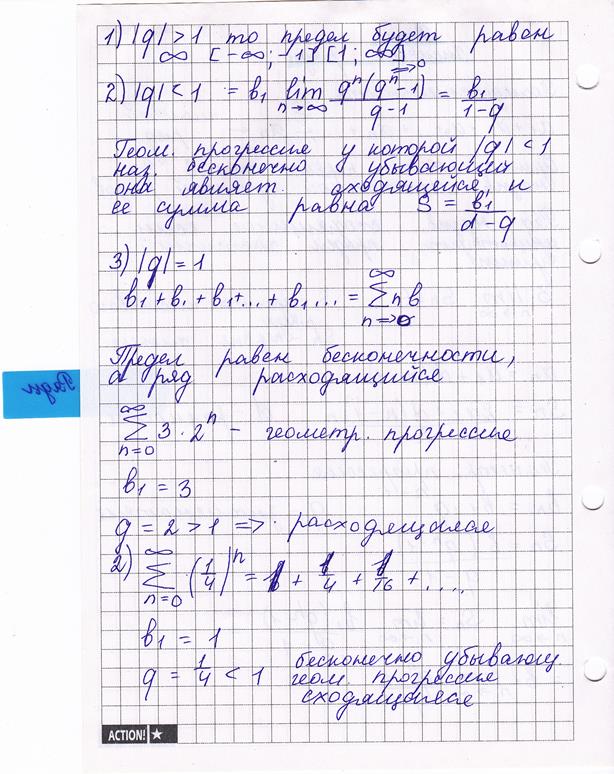 1) |q| > 1 то предел будет равен
∞ [-∞; -1] [1; ∞]
2) |q| < 1 = b₁ lim n→∞ qⁿ(qⁿ-1) =>0 / q-1 = b₁ / 1-q
Геом. прогрессие у которой |q| < 1
наз. бесконечно убывающий
она являет. сходящейся и
ее сумма равна S = b₁ / d-q
3) |q| = 1
b₁ + b₁ + b₁ + ... + b₁ ... = ∑ n b n=>0 ∞
Предел равен бесконечности,
а ряд расходящийся
∑ n=0 ∞ 3 · 2ⁿ - геометр. прогрессие
b₁ = 3
q = 2 > 1 => расходящаяся
2) ∑ n=0 ∞ (1/4)ⁿ = 1 + 1/4 + 1/16 + ....
b₁ = 1
q = 1/4 < 1 бесконечно убывающ.
геом. прогрессие
сходящаяся
Ряды
ACTION!